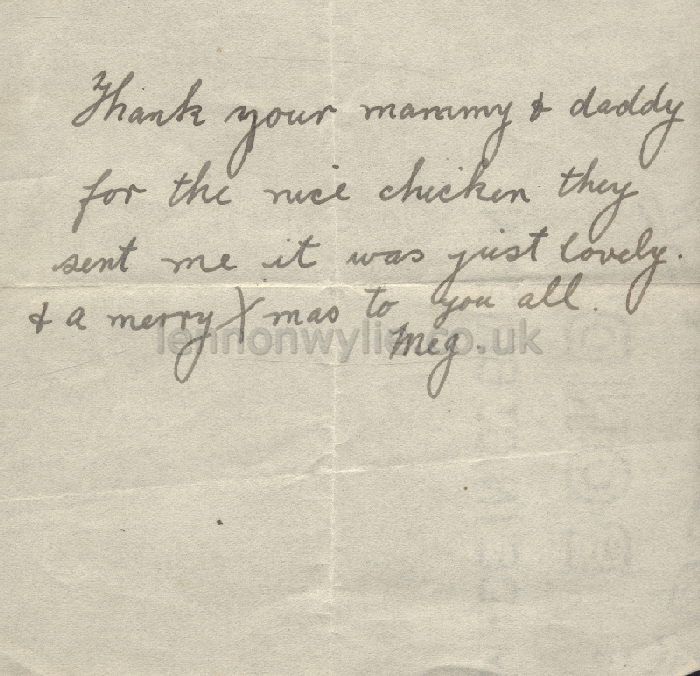 Thank your mammy & daddy
for the nice chicken they
sent me it was just lovely.
& a merry Xmas to you all.
Meg.
lennonwylie.co.uk